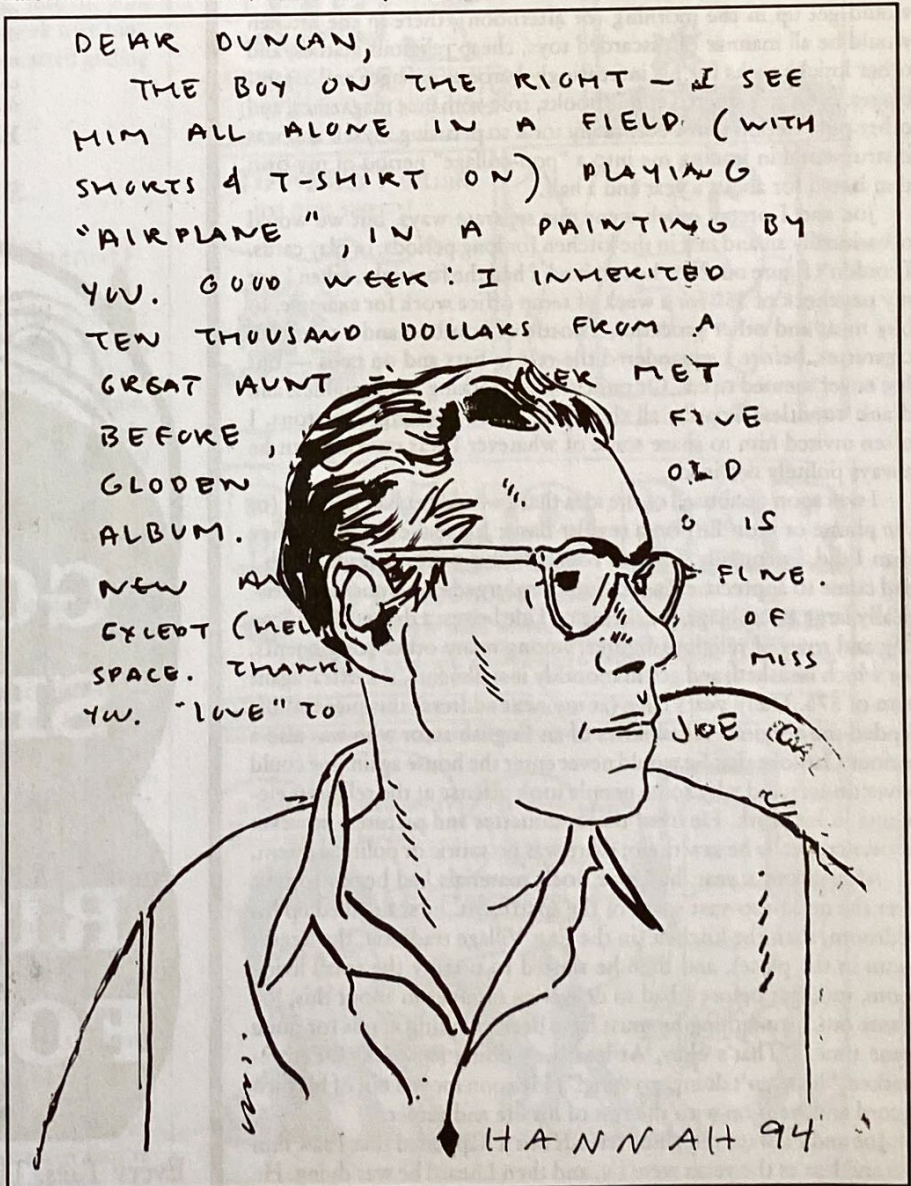 DEAR DUNCAN,
THE BOY ON THE RIGHT – I SEE
HIM ALL ALONE IN A FIELD (WITH
SHORTS & T-SHIRT ON) PLAYING
"AIRPLANE", IN A PAINTING BY
YOU. GOOD WEEK: I INHERITED
TEN THOUSAND DOLLARS FROM A
GREAT AUNT MET
BEFORE, FIVE
GLODEN OLD
ALBUM. IS
NEW FINE.
EXCEPT (MEL OF
SPACE. THANKS MISS
YOU. "LOVE" TO JOE
HANNAH 94